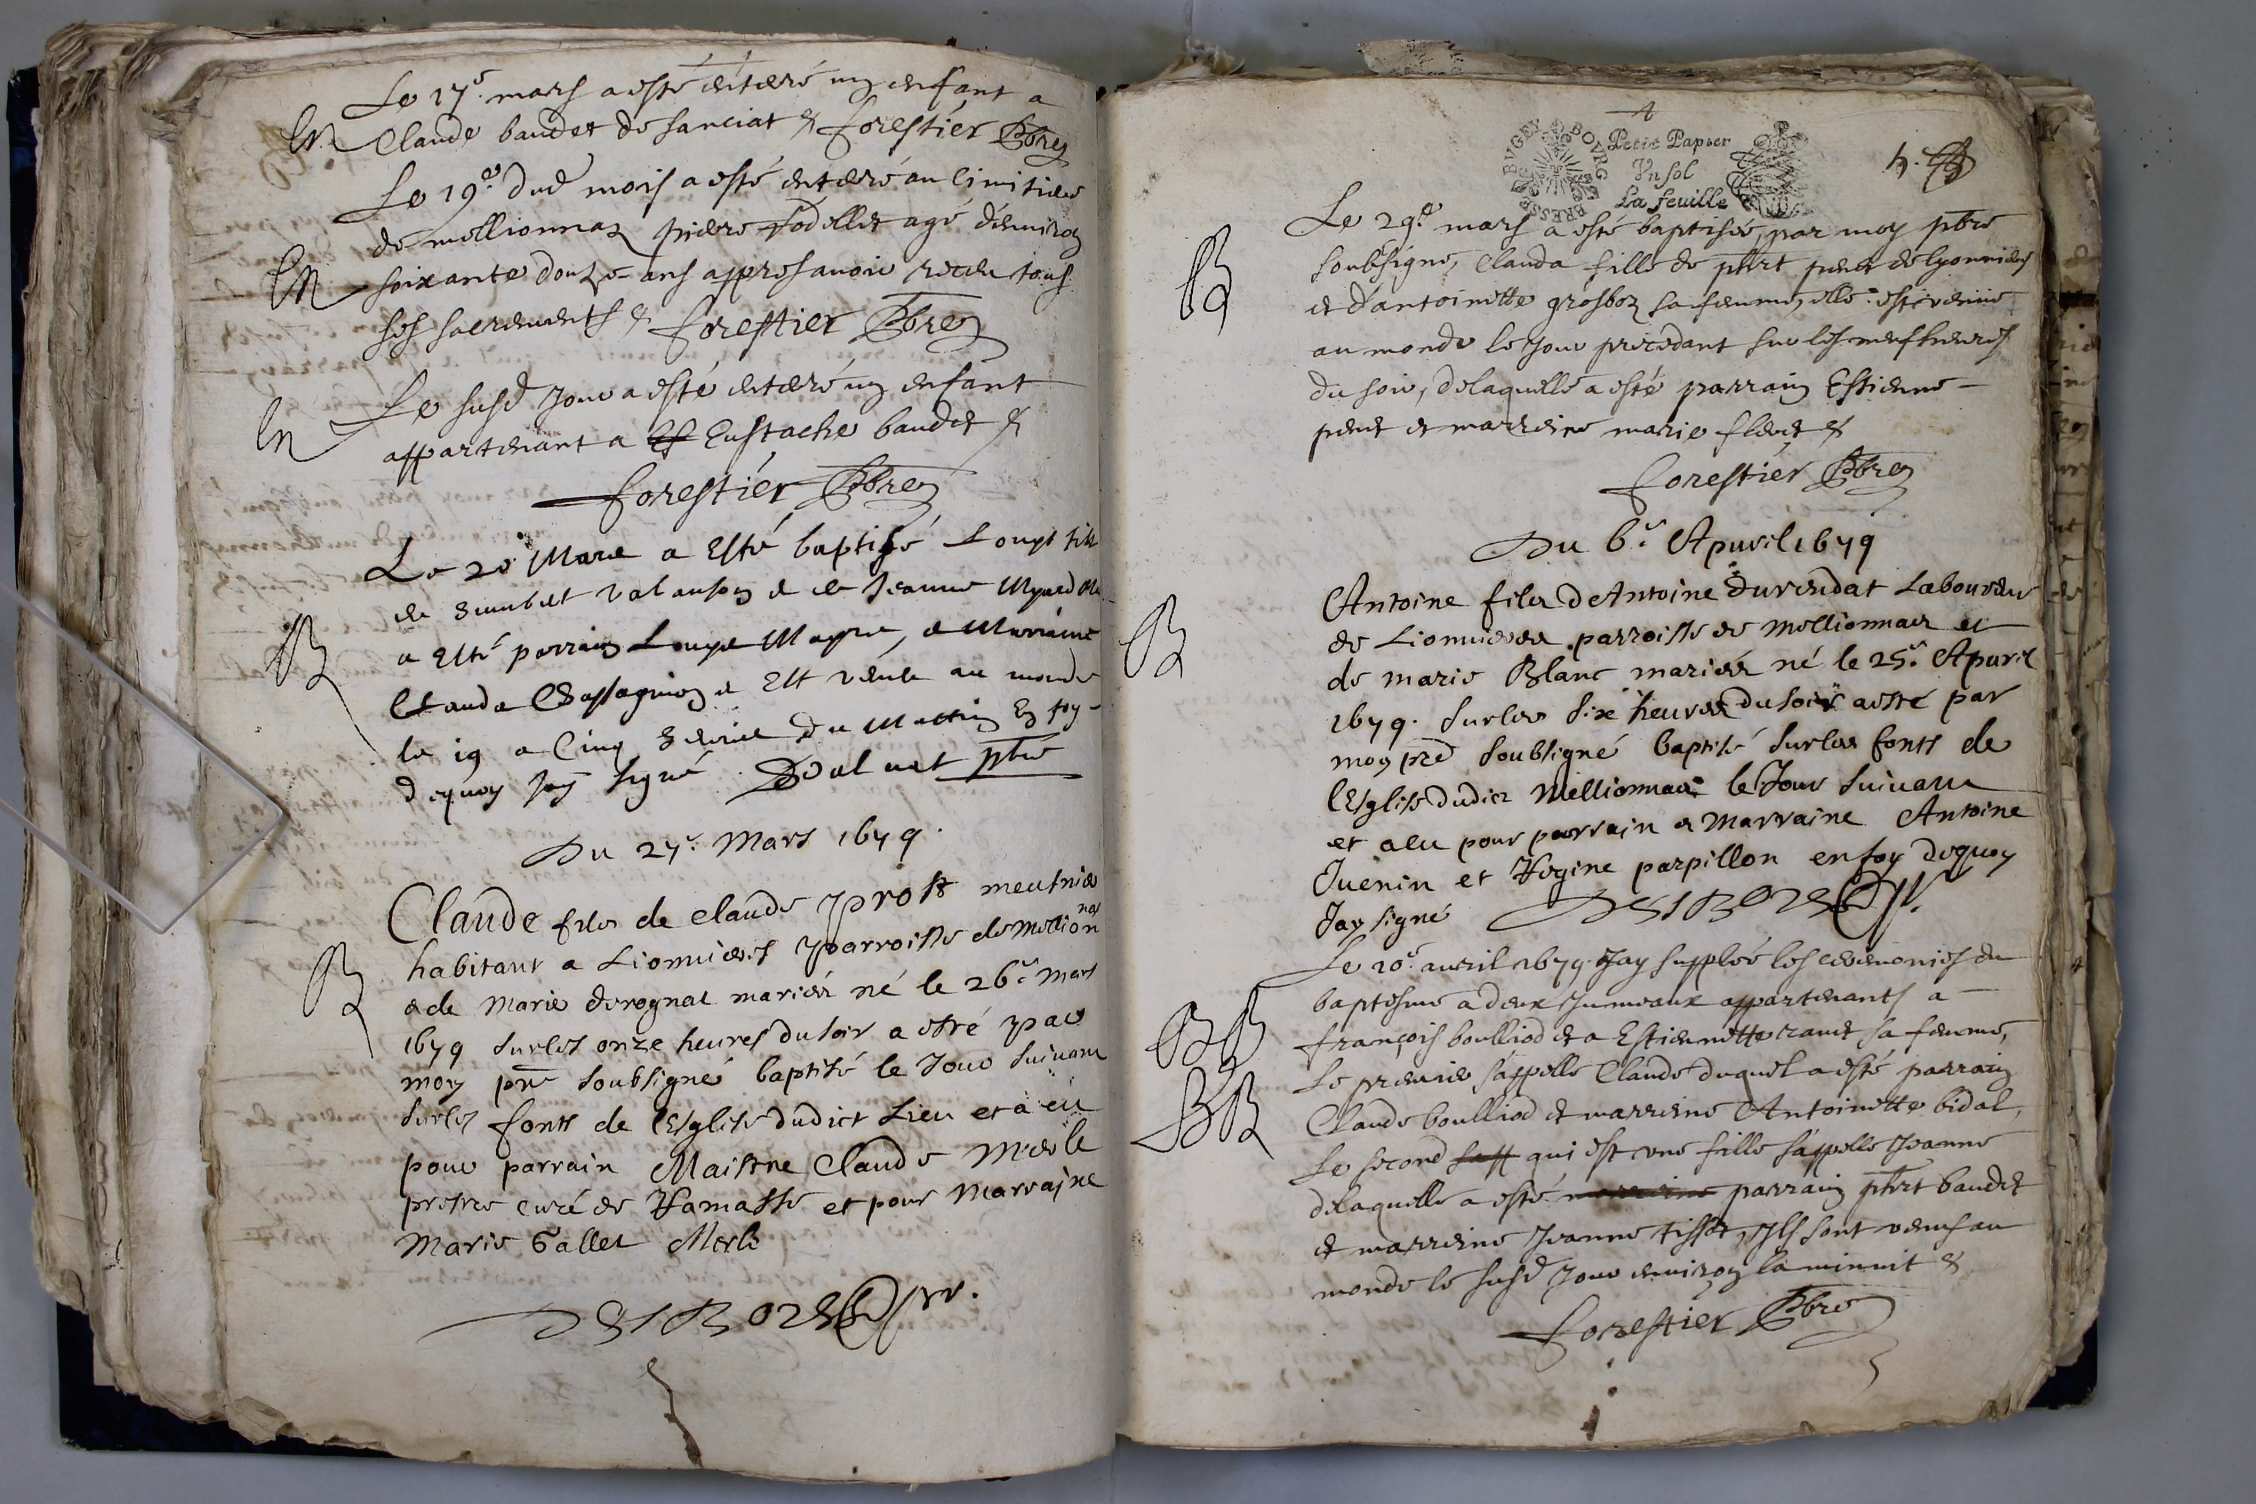 Le 17e mars a esté enterré un enfant a
En Claude baudet de sanciat & forestier Pbre
Le 19e dud mois a esté enterré au cimitiere
de mellionnaz pierre
agé d'environ
En soixante douze ans appres avoir receu tous
ses sacrements & forestier Pbre
Le susd jour a esté enterré un enfant
En appartenant a Eustache baudet &
forestier Pbre
Le 20 Mars a Esté baptisé Louys fils
de et de Jeanne
B a Esté parrain Louys et Marraine
Clauda et Est venu au monde
le 19 a Cinq heures du Mattin En foy
dequoy Jay signé ptre
Du 27e Mars 1679.
Claude fils de claude prost meusnier
B habitant a Lionnieres parroisse de Mellionnas
& de Marie mariés né le 26e Mars
1679 sur les onze heures du soir a esté par
moy pre soubsigné baptisé le Jour suivant
sur les fonts de l'Esglise dudict Lieu et a eu
pour parrain Maistre Claude Merle
prestre curé de Ramasse et pour Marrayne
Marie Gallet Merle
DESBORDES
Petit Papier
Vn sol
La feuille
BRESSE BVGEY BOVRG
4.
Le 29e mars a esté baptisée, par moy pbre
B soubsigné, Clauda fille de phrt peret de lyonnieres
et d'antoinette grosboz sa femme, elle est venüe
au monde le Jour precedant sur les neuf heures
du soir, de laquelle a esté parrain Estienne
peret et marreine marie &
forestier Pbre
Du 6e Apuril 1679
Antoine fils D'Antoine Durendat Laboureur
B de Lionnieres parroisse de Mellionnas et
de marie Blanc mariés né le 25e Apuril
1679. sur les six heures du soir a esté par
moy pre soubsigné baptisé sur les fonts de
l'Esglise dudict Mellionnas le Jour suivant
et a eu pour parrain & Marraine Antoine
Juenin et Regine parpillon en foy dequoy
Jay signé DESBORDES
Le 10e auril 1679. Jay suppleé les ceremonies du
baptesme a deux Jumeaux appartenants a
BB françois boulliod et a Estiennette ranet sa femme,
Le premier s'appelle Claude duquel a esté parrain
BB Claude boulliod et marreine Antoinette bidal,
Le second qui est une fille s'appelle Jeanne
de laquelle a esté parrain phrt baudet
et marreine Jeanne tissot, Ils sont venus au
monde le susd Jour environ la minuit &
forestier Pbre